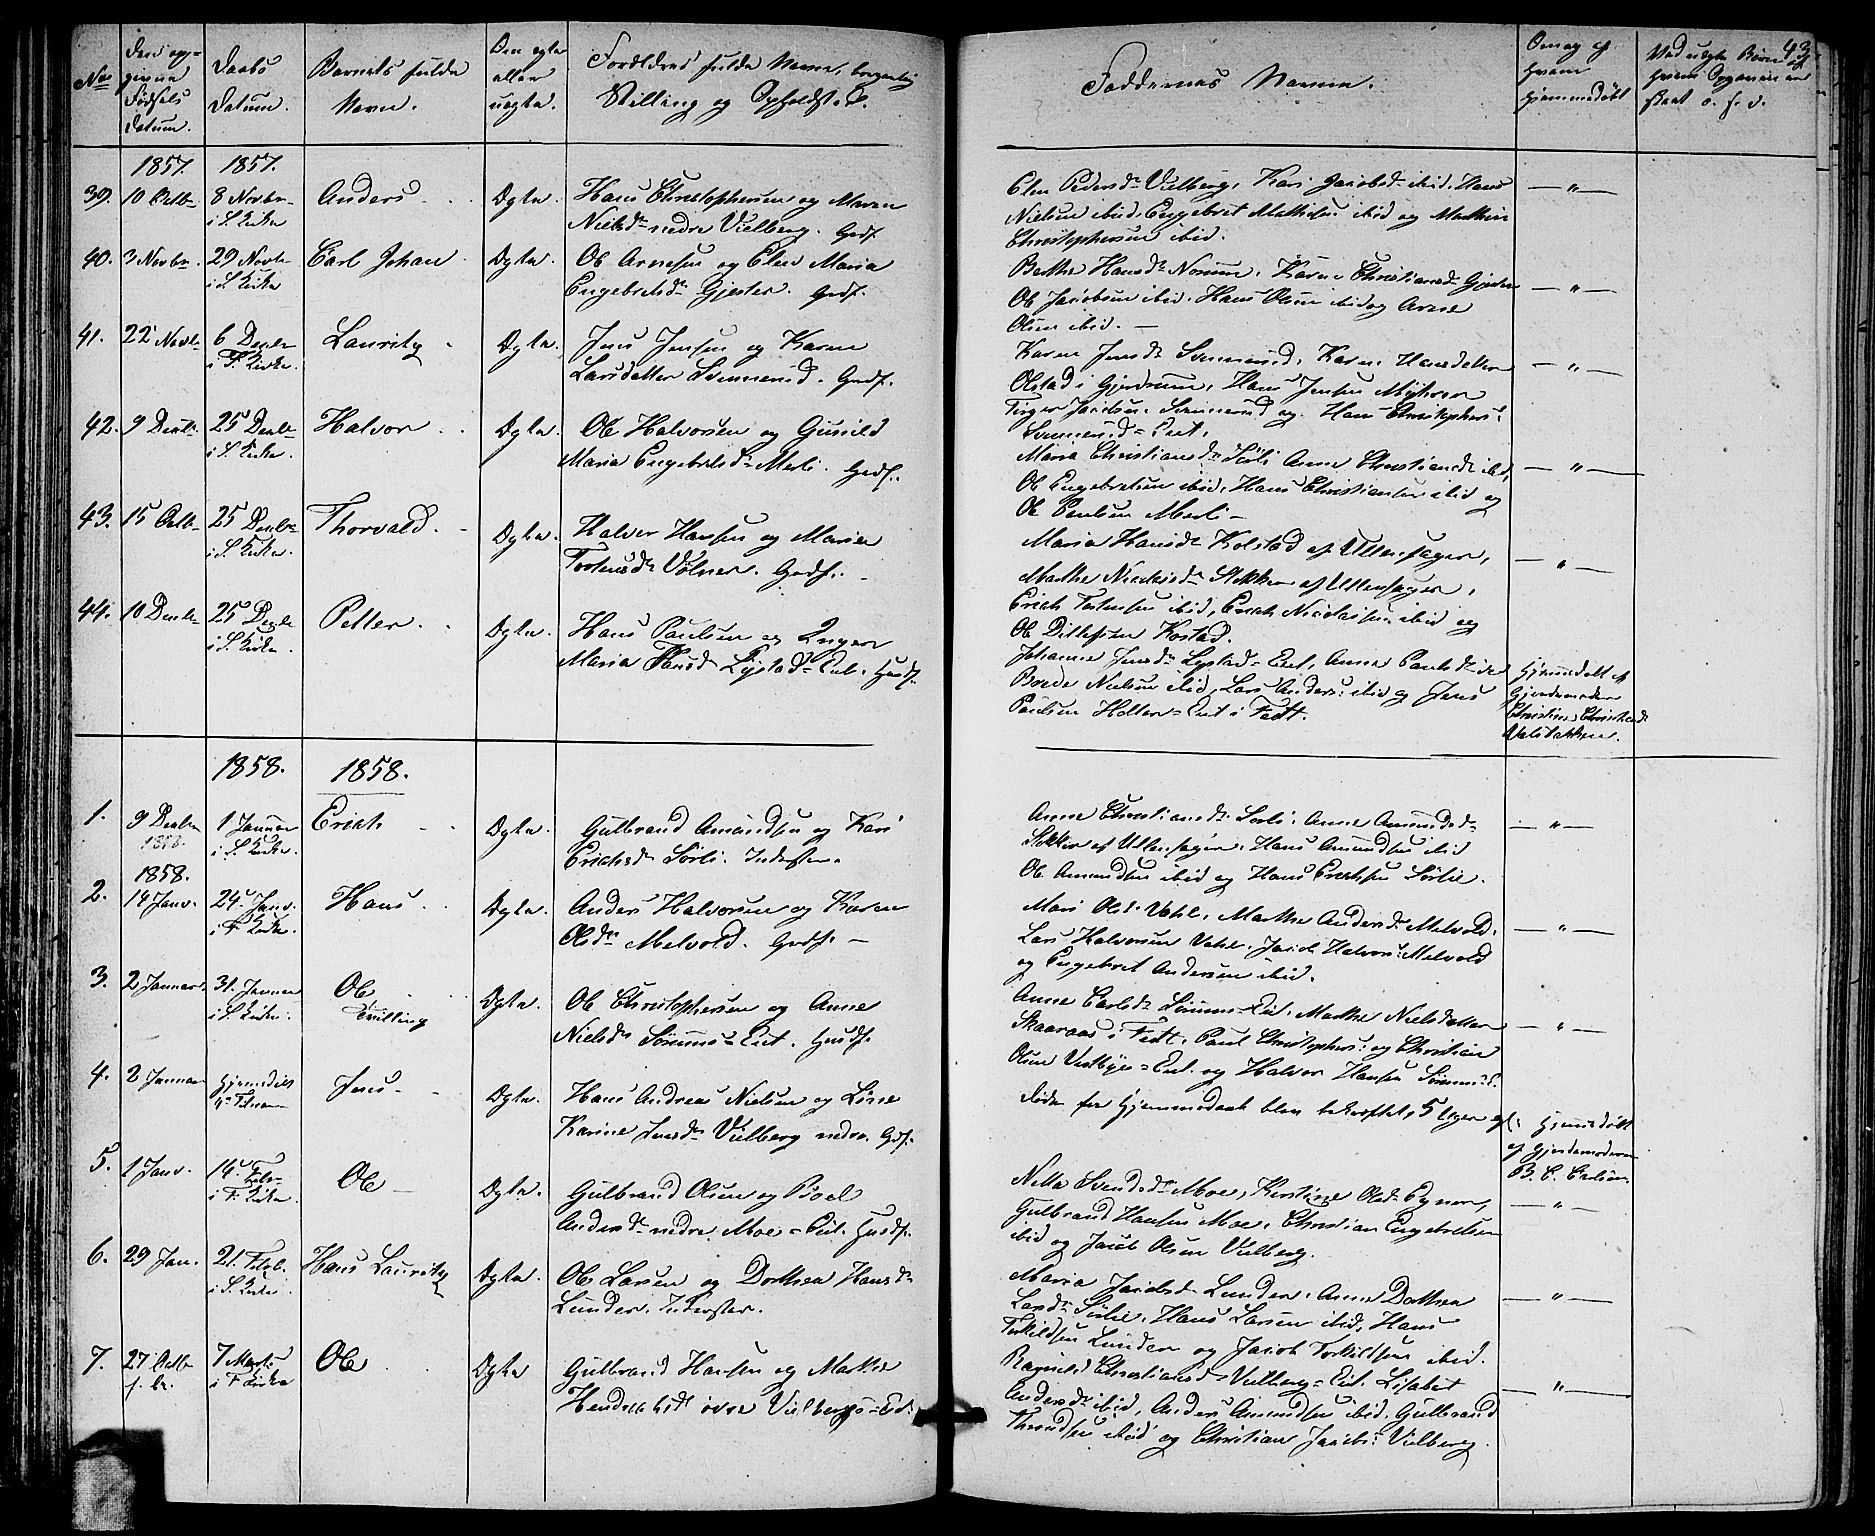 43
No.
Den opgivne Fødsels Datum.
Daabs Datum.
Barnets fulde Navn.
Om ægte eller uægte.
Forældres fulde Navne, borgerlig Stilling og Opholdsted.
Faddernes Navne.
Om og af Hvem hjemmedøbt
1857. 1857.
39. 10 Octb. 8 Novbr. i S. Kirke
Anders
Ægte.
Hans Christophersen og Maren
Nielsdr nedre Vilberg. Grdf.
Elen Pedersdr Vilberg, Kari Jacobsdr ibid, Hans
Nielsen ibid, Engebret Mathisen ibid og Mathias
Christophersen ibid.
40. 3 Novbr. 29 Novbr i S. Kirke
Carl Johan
Ægte.
Ole Arnesen og Elen Maria
Engebretsdr Gjester. Grdf.
Berthe Hansdr Norum, Karen Christiansdr Gjester
Ole Jacobsen ibid, Hans Olsen ibid og Arne
Olsen ibid.
41. 22 Novbr 6 Decbr i F. Kirke.
Lauritz
Ægte.
Jens Jensen og Karen
Larsdatter Svennerud. Grdf.
Karen Jensdr Svennerud, Karen Hansdatter
Olstad i Gjerdrum, Hans Jensen Myhrer
Jacobsen Svennerud og Hans Christophers.
Svennerud-Eiet.
42. 9 Decbr. 25 Decbr i S. Kirke.
Halvor
Ægte.
Ole Halvorsen og Gunild
Maria Engebretsdr Merli. Grdf.
Maria Christiansdr Sørli Anne Christiansdr ibid,
Ole Engebretsen ibid, Hans Christiansen ibid og
Ole Paulsen Merli
43. 15 Octb. 25 Decbr i S. Kirke.
Thorvald.
Ægte.
Halvor Hansen og Maria
Tostensdr Vølner. Grdf.
Maria Hansdr Kolstad af Ullensager,
Marthe Nicolaisdr Slekken af Ullensager,
Erich Tostensen ibid, Erich Nicolaisen ibid og
Ole Ditlefsen Kostad.
44. 10 Decbr. 25 Decbr i S. Kirke.
Petter.
Ægte.
Hans Paulsen og Inger
Maria Hansdr Lystad-Eiet. Husf.
Johanne Jensdr Lystad-Eiet, Anne Paulsdr ibid
Brede Nielsen ibid, Lars Anders: ibid og Jens
Paulsen Holter-Eiet i Fedt.
Hjemmedøbt af
Gjordemoder
Christine
1858. 1858.
1. 9 Decbr 1 Januar i S. Kirke.
Erich
Ægte.
Gulbrand Amundsen og Kari
Erichsdr Sørli. Inderster.
Anne Christiansdr Sørli, Anne Amundsdr
Slekken af Ullensager, Hans Amundsen ibid
Ole Amundsen ibid og Hans Erichsen Sørlie.
1858.
2. 14 Janv. 24. Janv. i F. Kirke.
Hans
Ægte.
Anders Halvorsen og Karen
Olsdr Melvold. Grdf.
Mari Olsdr Vahl, Marthe Andersdr Melvold.
Lars Halvorsen Vahl, Jacob Halvors: Melvold
og Engebret Andersen ibid.
3. 2 Januar. 31. Januar i S. Kirke.
Ole
Tvilling
Ægte.
Ole Christophersen og Anne
Nielsdr Sørums-Eiet. Husf.
Anne Carlsdr Sørums-Eiet, Marthe Nielsdatter
Skaaraas i Fedt, Paul Christophers: og Christian
Olsen Vestbyes-Eiet og Halvor Hansen Sørums-E.
4. 2 Januar Hjemmedøbt
Jens
Ægte.
Hans Andreas Nielsen og Line
Karine Jensdr Vilberg nedre. Grdf.
Døde før Hjemmedaab blev bekræftet, 5 Uger gl.
Hjemmedøbt
af Gjordemoderen
B. C. Carlsen.
5. 1 Janv. 14. Febr. i F. Kirke
Ole
Ægte.
Gulbrand Olsen og Boel
Andersdr nedre Moe-Eiet. Husf.
Netta Svendsdr Moe, Kerstine Olsdr Egner,
Gulbrand Hansen Moe, Christian Engebretsen
ibid og Jacob Olsen Vilberg.
6. 29 Jan. 21. Febr. i S. Kirke
Hans Lauritz
Ægte.
Ole Larsen og Dorthea Hansdr
Lunder. Inderster.
Maria Jacobsdr Lunder, Anne Dorthea
Larsdr Sørlie, Hans Larsen ibid, Hans
Torkildsen Lunder og Jacob Torkildsen ibid.
7. 27 Octb. f. A. 7 Marts i F. Kirke
Ole
Ægte
Gulbrand Hansen og Marthe
øvre Vilbergs-Eie.
Ragnild Christiansdr Vilberg-Eiet, Lisabet
Andersdr ibid, Anders Amundsen ibid, Gulbrand
ibid og Christian Jacobs: Vilberg.